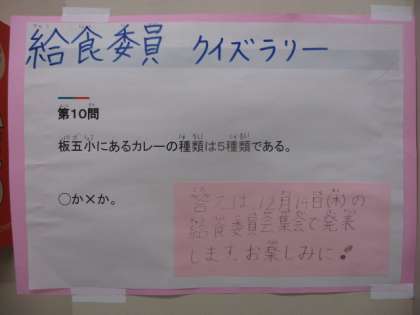 給食委員 クイズラリー
第10問
板五小にあるカレーの種類は5種類である。
○か×か。
答えは、12月14日(水)の
給食委員会集会で発表
します。お楽しみに!